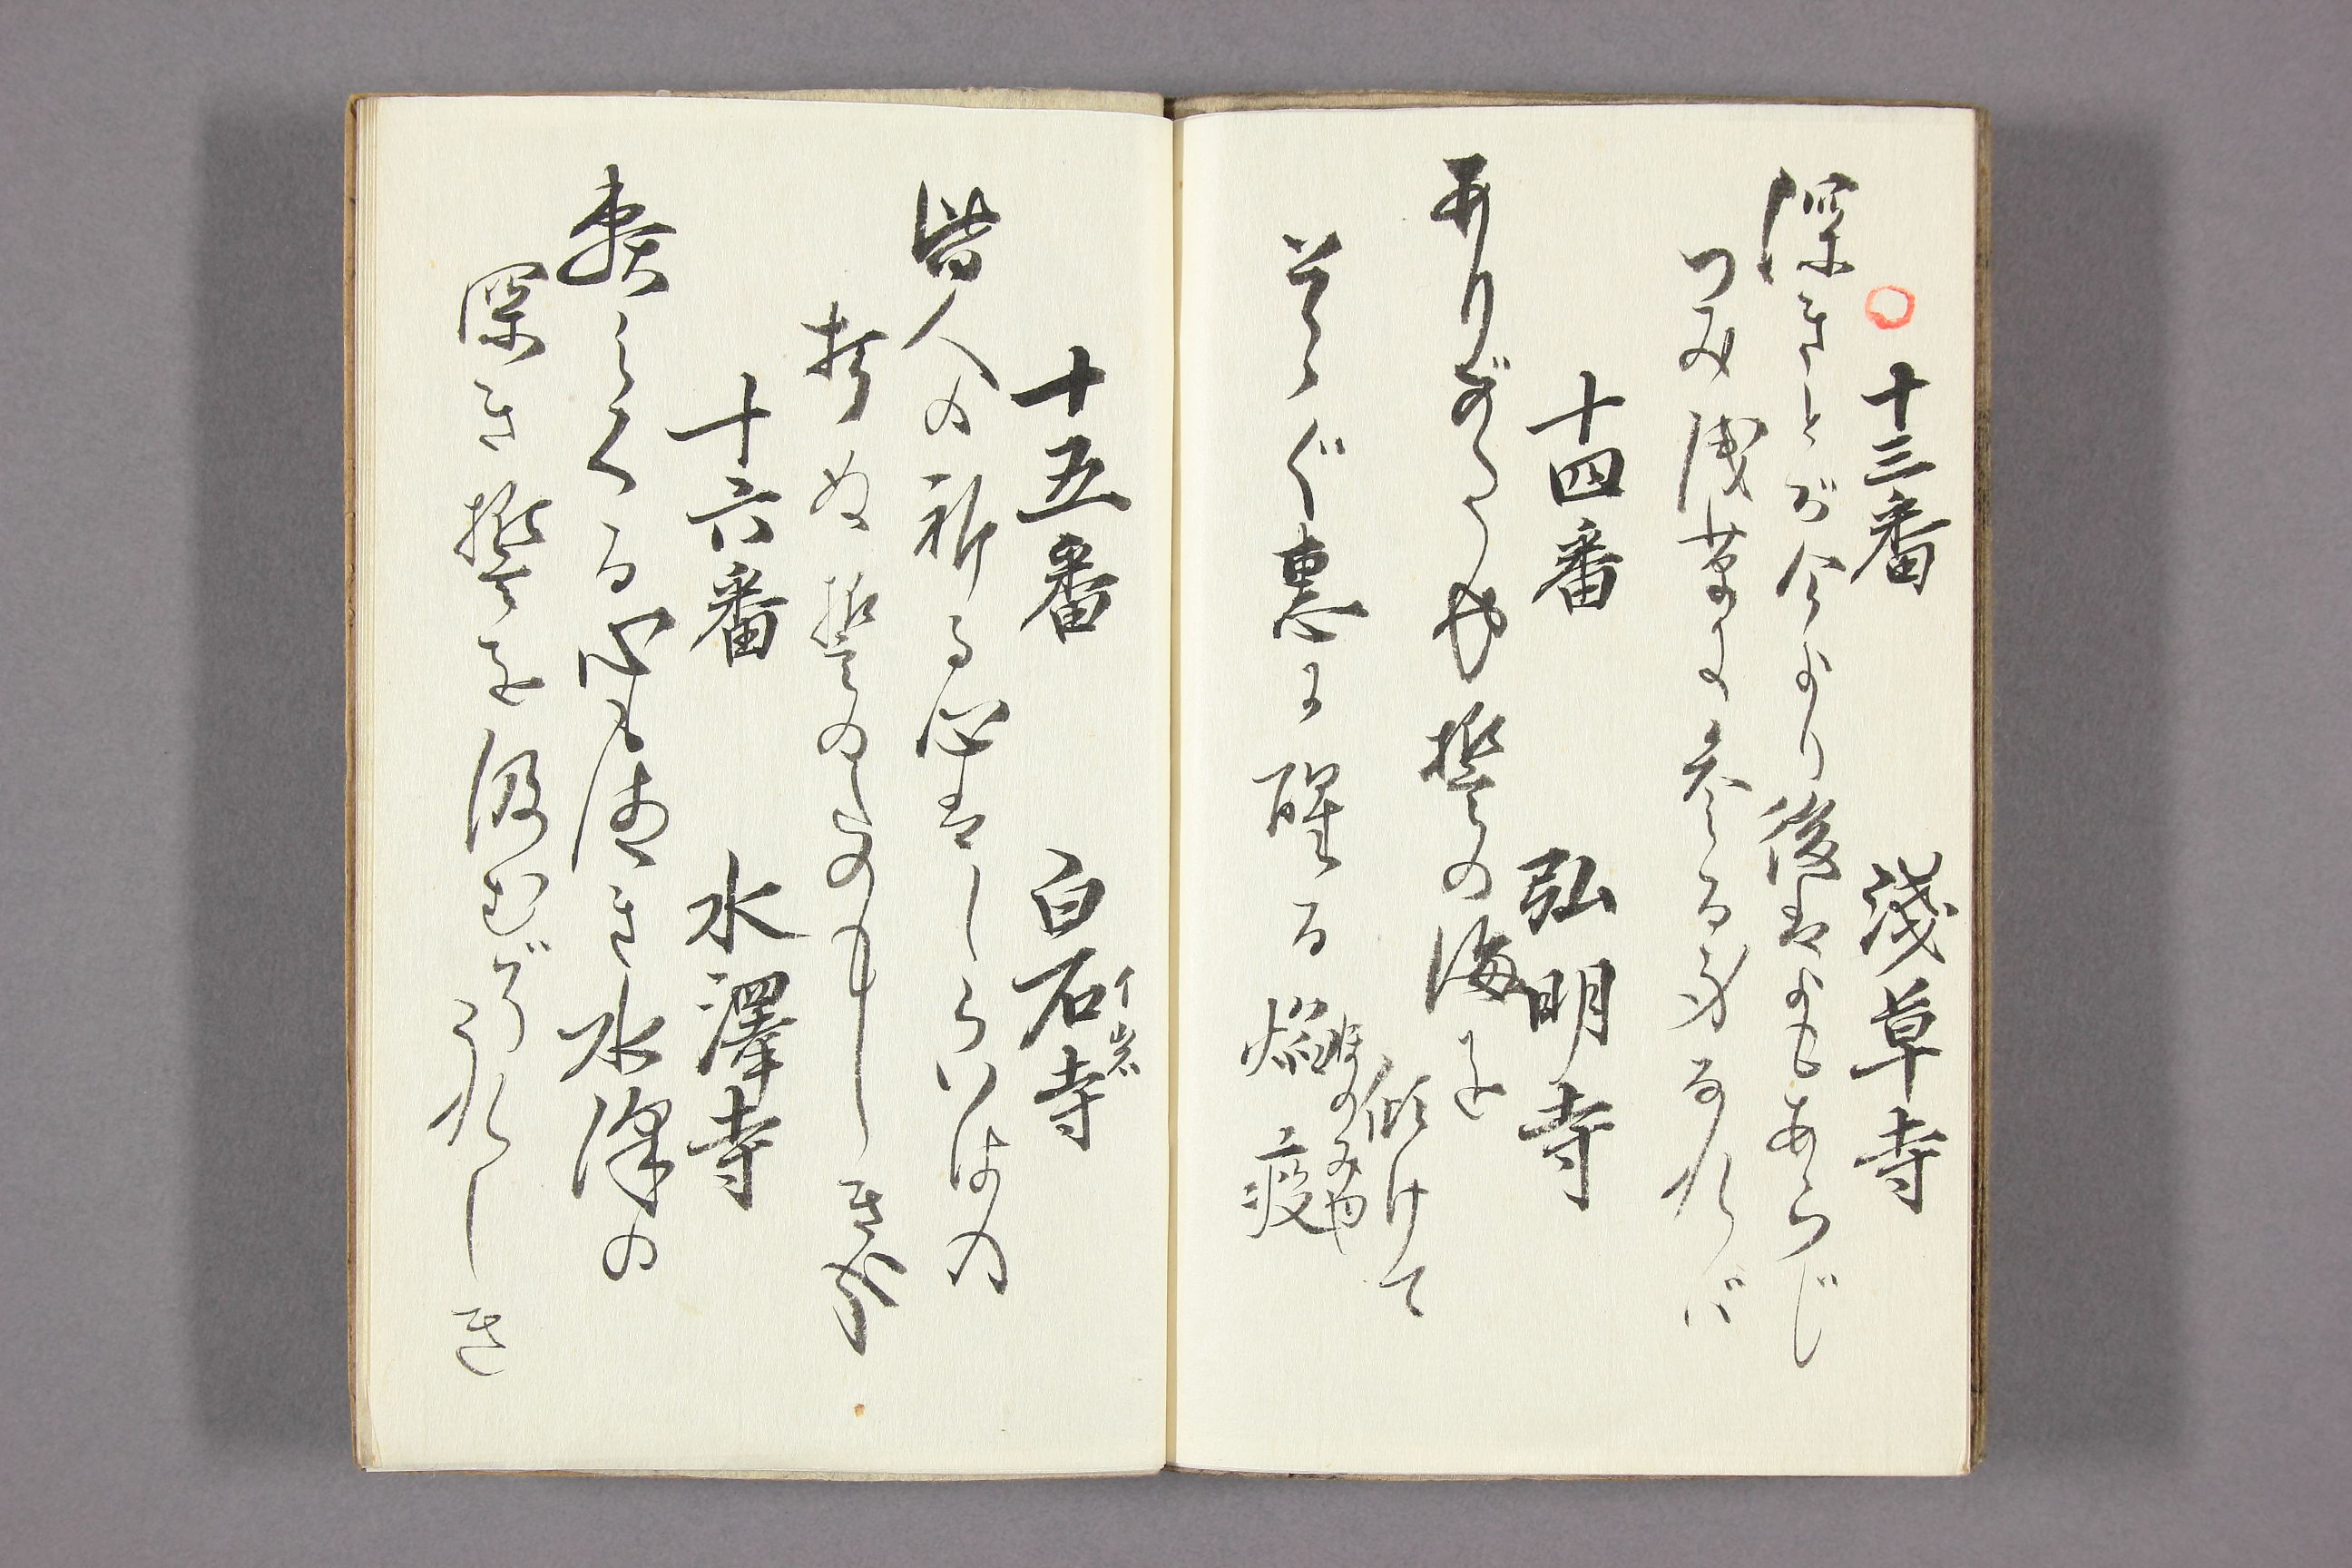 十三番　淺草寺
深きとが今より後はよもあらじ
つみ浅草に参る身なれバ
十四番　弘明寺
ありがたや誓の海を傾けて
そゝぐ恵に醒る焔疫
ほのみや
十五番　白石寺
イ岩
皆人の祈る心はしらいはの
朽ぬ誓のたのもしきかな
十六番　水澤寺
みくる心も清き水澤の
深き誓を汲むぞうれしき